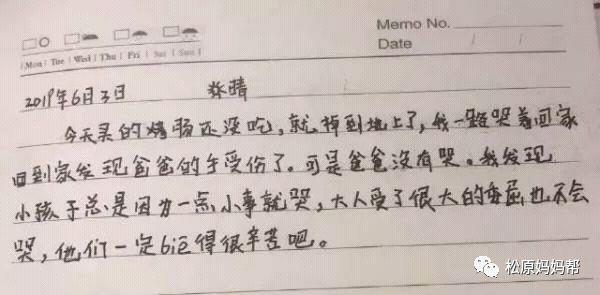 Memo No.
Mon Tue Wed Thu Fri Sat Sun
Date / /
2019年6月3日 张晴
今天买的烤肠还没吃，就掉到地上了，我一路哭着回家
回到家发现爸爸的手受伤了。可是爸爸没有哭。我发现
小孩子总是因为一点小事就哭，大人受了很大的委屈也不会
哭，他们一定biē得很辛苦吧。
松原妈妈帮